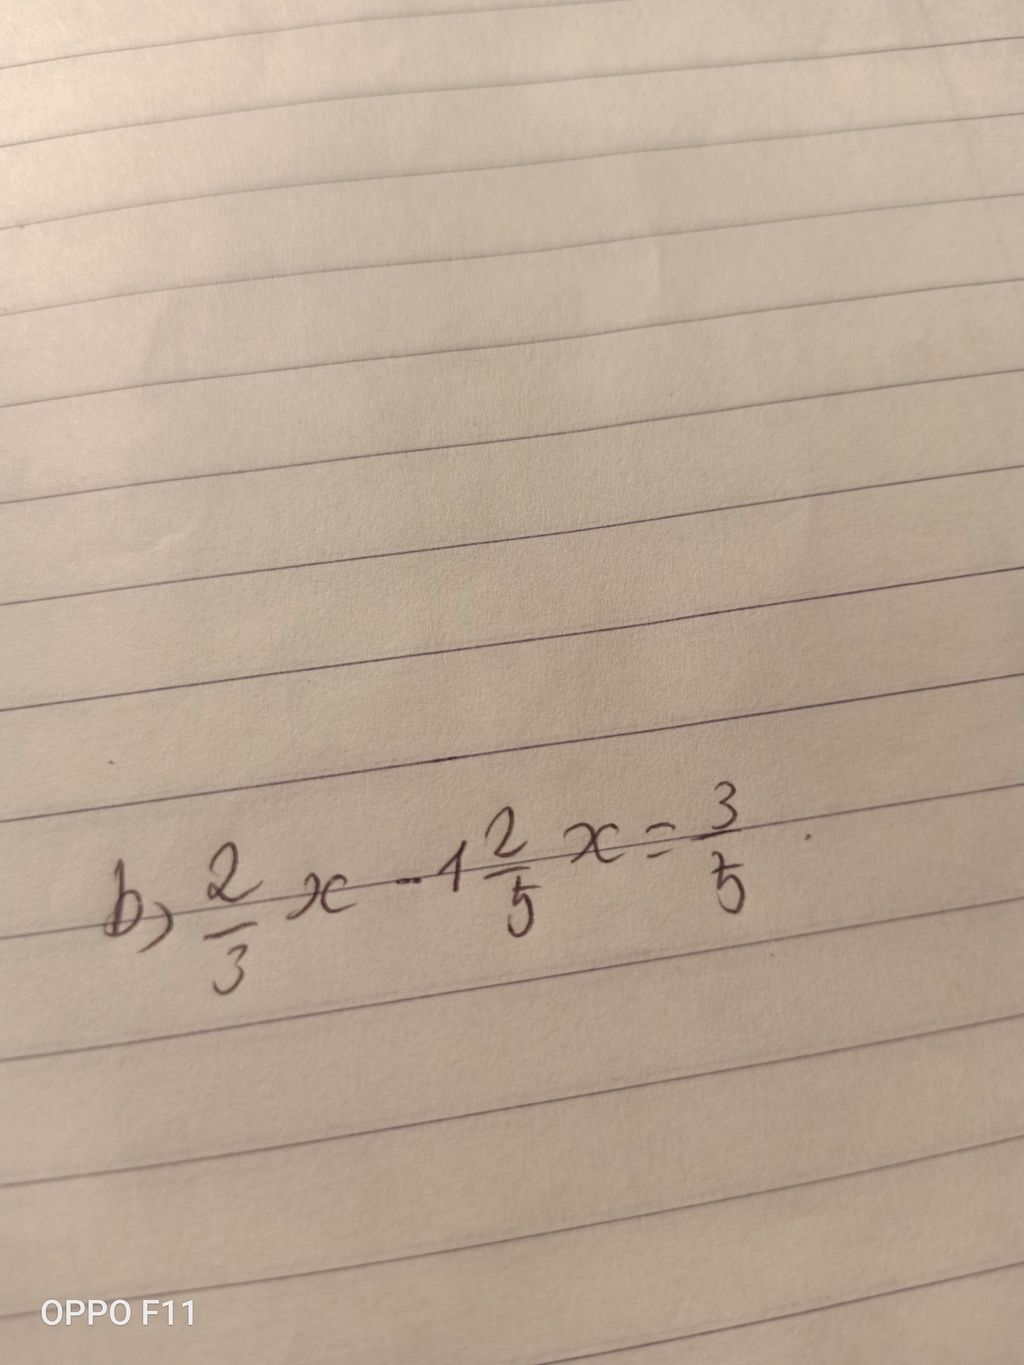 b, 2/3 x - 1 2/5 x = 3/5
OPPO F11